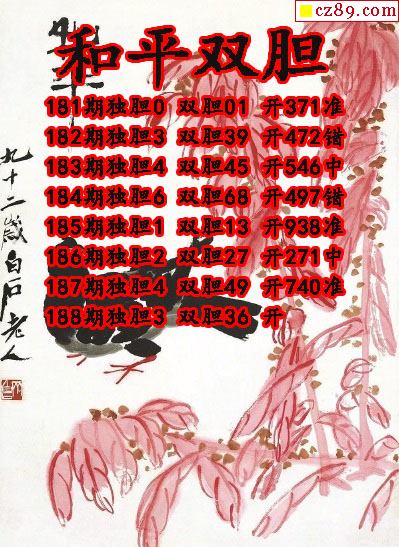 cz89.com
和平双胆
181期独胆0 双胆01 开371准
182期独胆3 双胆39 开472错
183期独胆4 双胆45 开546中
184期独胆6 双胆68 开497错
185期独胆1 双胆13 开938准
186期独胆2 双胆27 开271中
187期独胆4 双胆49 开740准
188期独胆3 双胆36 开
九十二岁白石老人